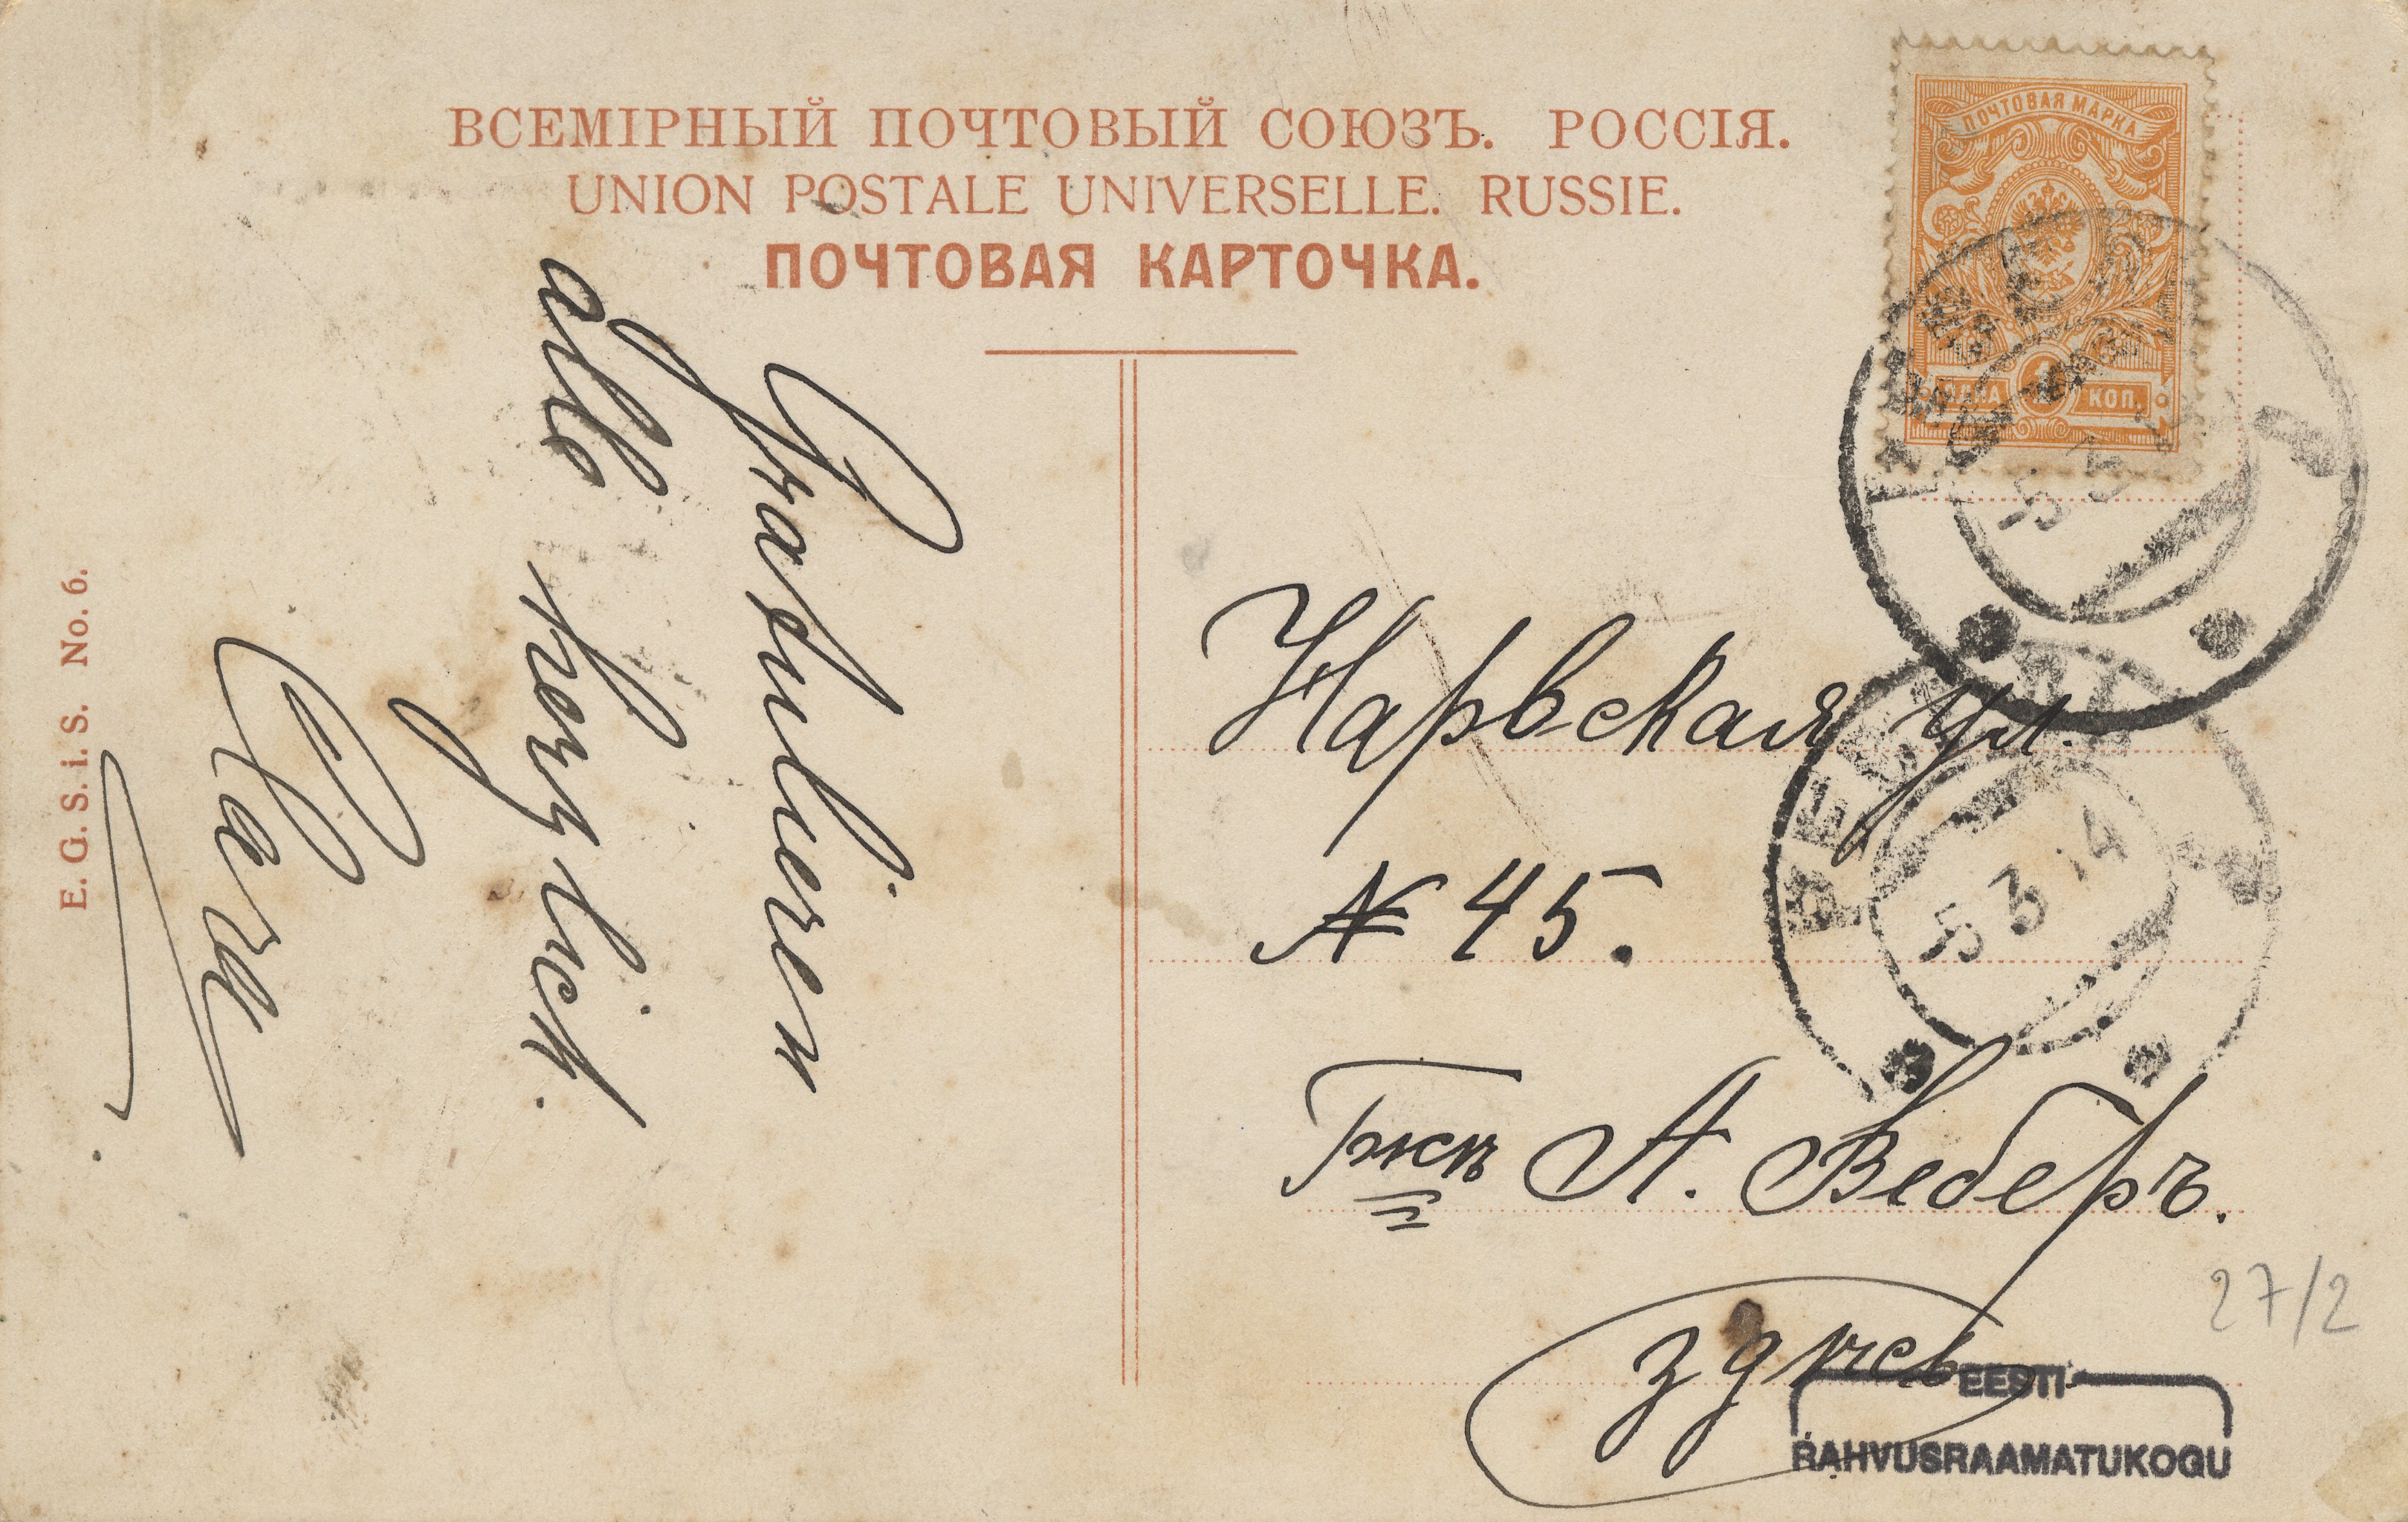 ВСЕМІРНЫЙ ПОЧТОВЫЙ СОЮЗЪ. РОССІЯ.
UNION POSTALE UNIVERSELLE. RUSSIE.
ПОЧТОВАЯ КАРТОЧКА.
ПОЧТОВАЯ МАРКА
ОДНА 1 КОП.
5 3
Gratulieren
alle herzlich.
E. G. S. i. S. No. 6.
Нарвская ул.
№ 45.
5 3 14
А. Веберъ.
здѣсь
27/2
EESTI
RAHVUSRAAMATUKOGU